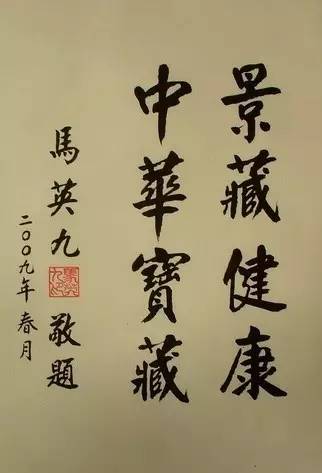 景藏健康
中華寶藏
馬英九敬題
二〇〇九年春月